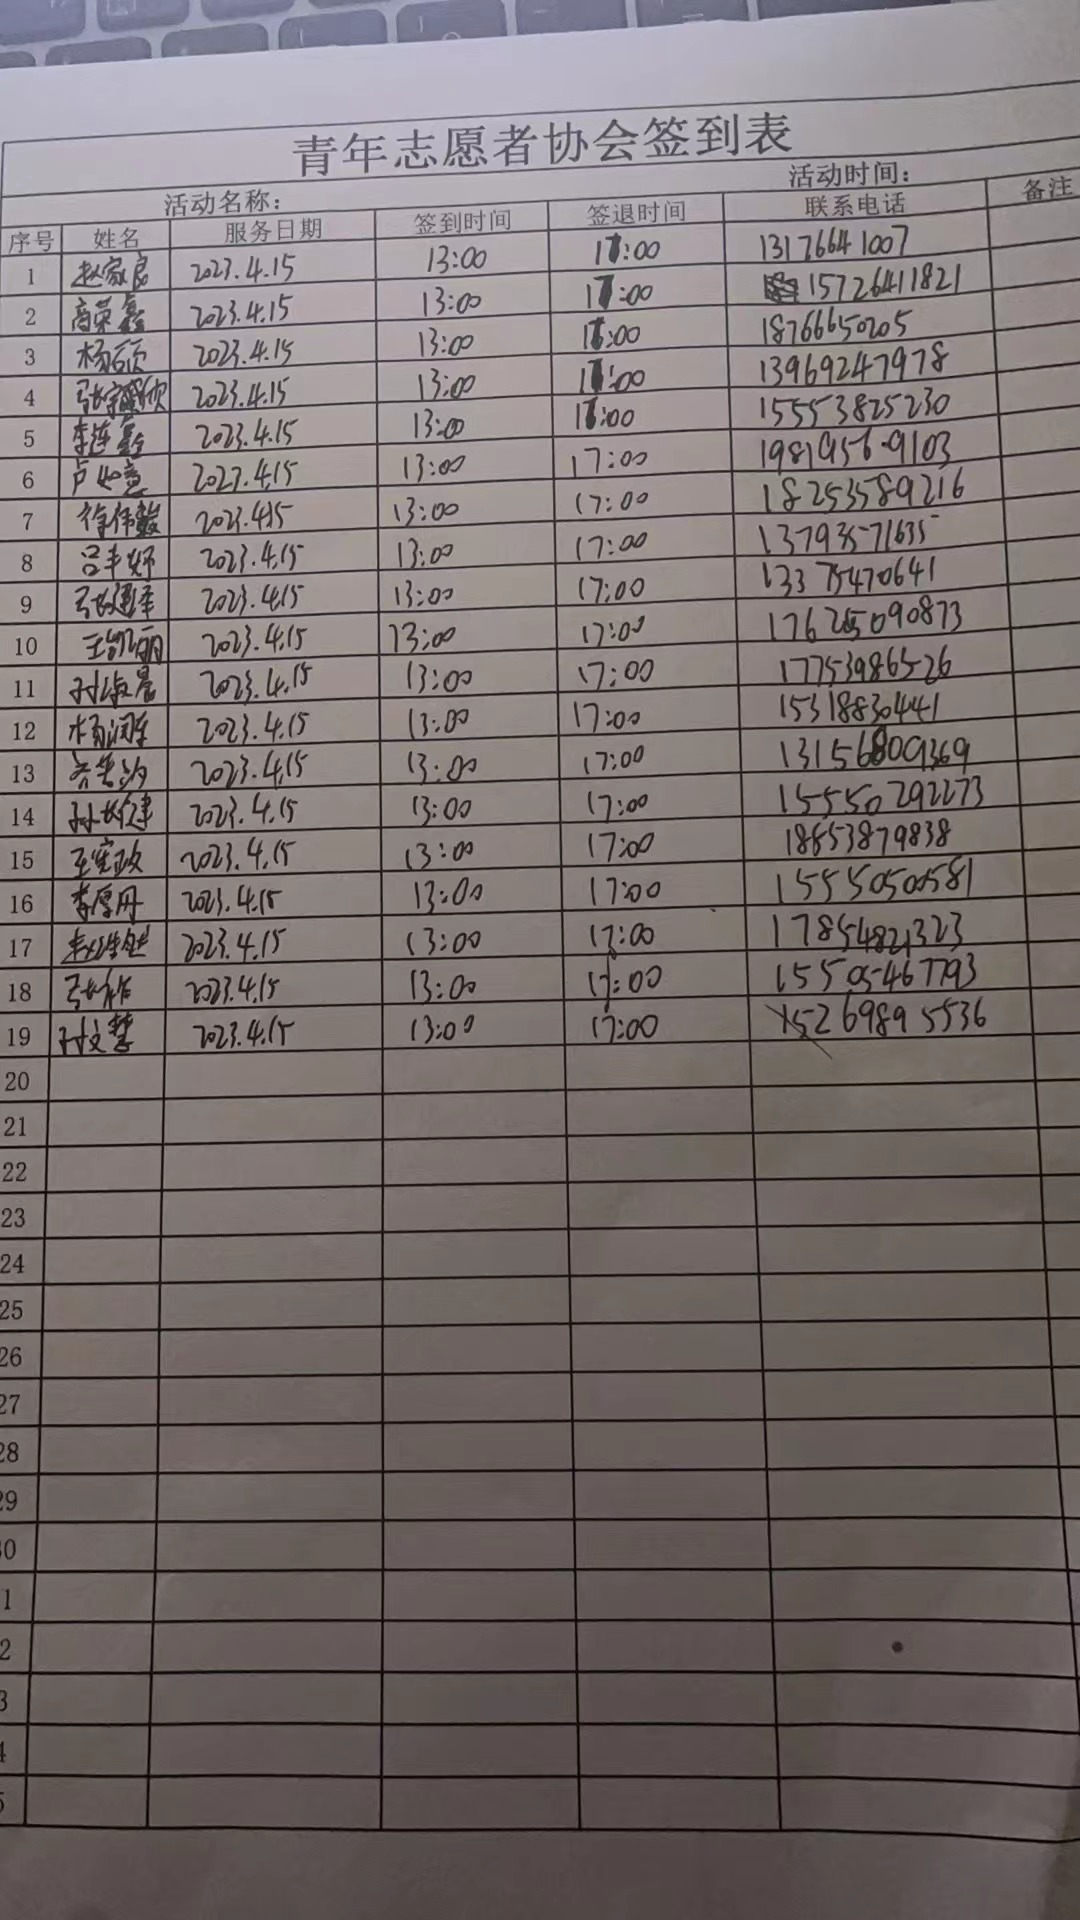 青年志愿者协会签到表
活动名称： 活动时间：
序号 姓名 服务日期 签到时间 签退时间 联系电话 备注
1 赵家良 2023.4.15 13:00 17:00 13176641007
2 高荣鑫 2023.4.15 13:00 17:00 15726411821
3 杨硕 2023.4.15 13:00 17:00 18766650205
4 2023.4.15 13:00 17:00 13969247978
5 李连鑫 2023.4.15 13:00 17:00 15553825230
6 卢如意 2023.4.15 13:00 17:00 19819569103
7 徐伟毅 2023.4.15 13:00 17:00 18253589216
8 吕丰娇 2023.4.15 13:00 17:00 13793571635
9 张建泽 2023.4.15 13:00 17:00 13375470641
10 王凯丽 2023.4.15 13:00 17:00
11 孙淑晨 2023.4.15 13:00 17:00 17753986526
12 杨润东 2023.4.15 13:00 17:00 15318830441
13 2023.4.15 13:00 17:00
14 2023.4.15 13:00 17:00 15550292273
15 王宪政 2023.4.15 13:00 17:00 18853879838
16 李厚丹 2023.4.15 13:00 17:00 15550500581
17 2023.4.15 13:00 17:00 17854821323
18 2023.4.15 13:00 17:00 15505467793
19 孙文慧 2023.4.15 13:00 17:00 15269895536
20
21
22
23
24
25
26
27
28
29
30
1
2
3
4
5